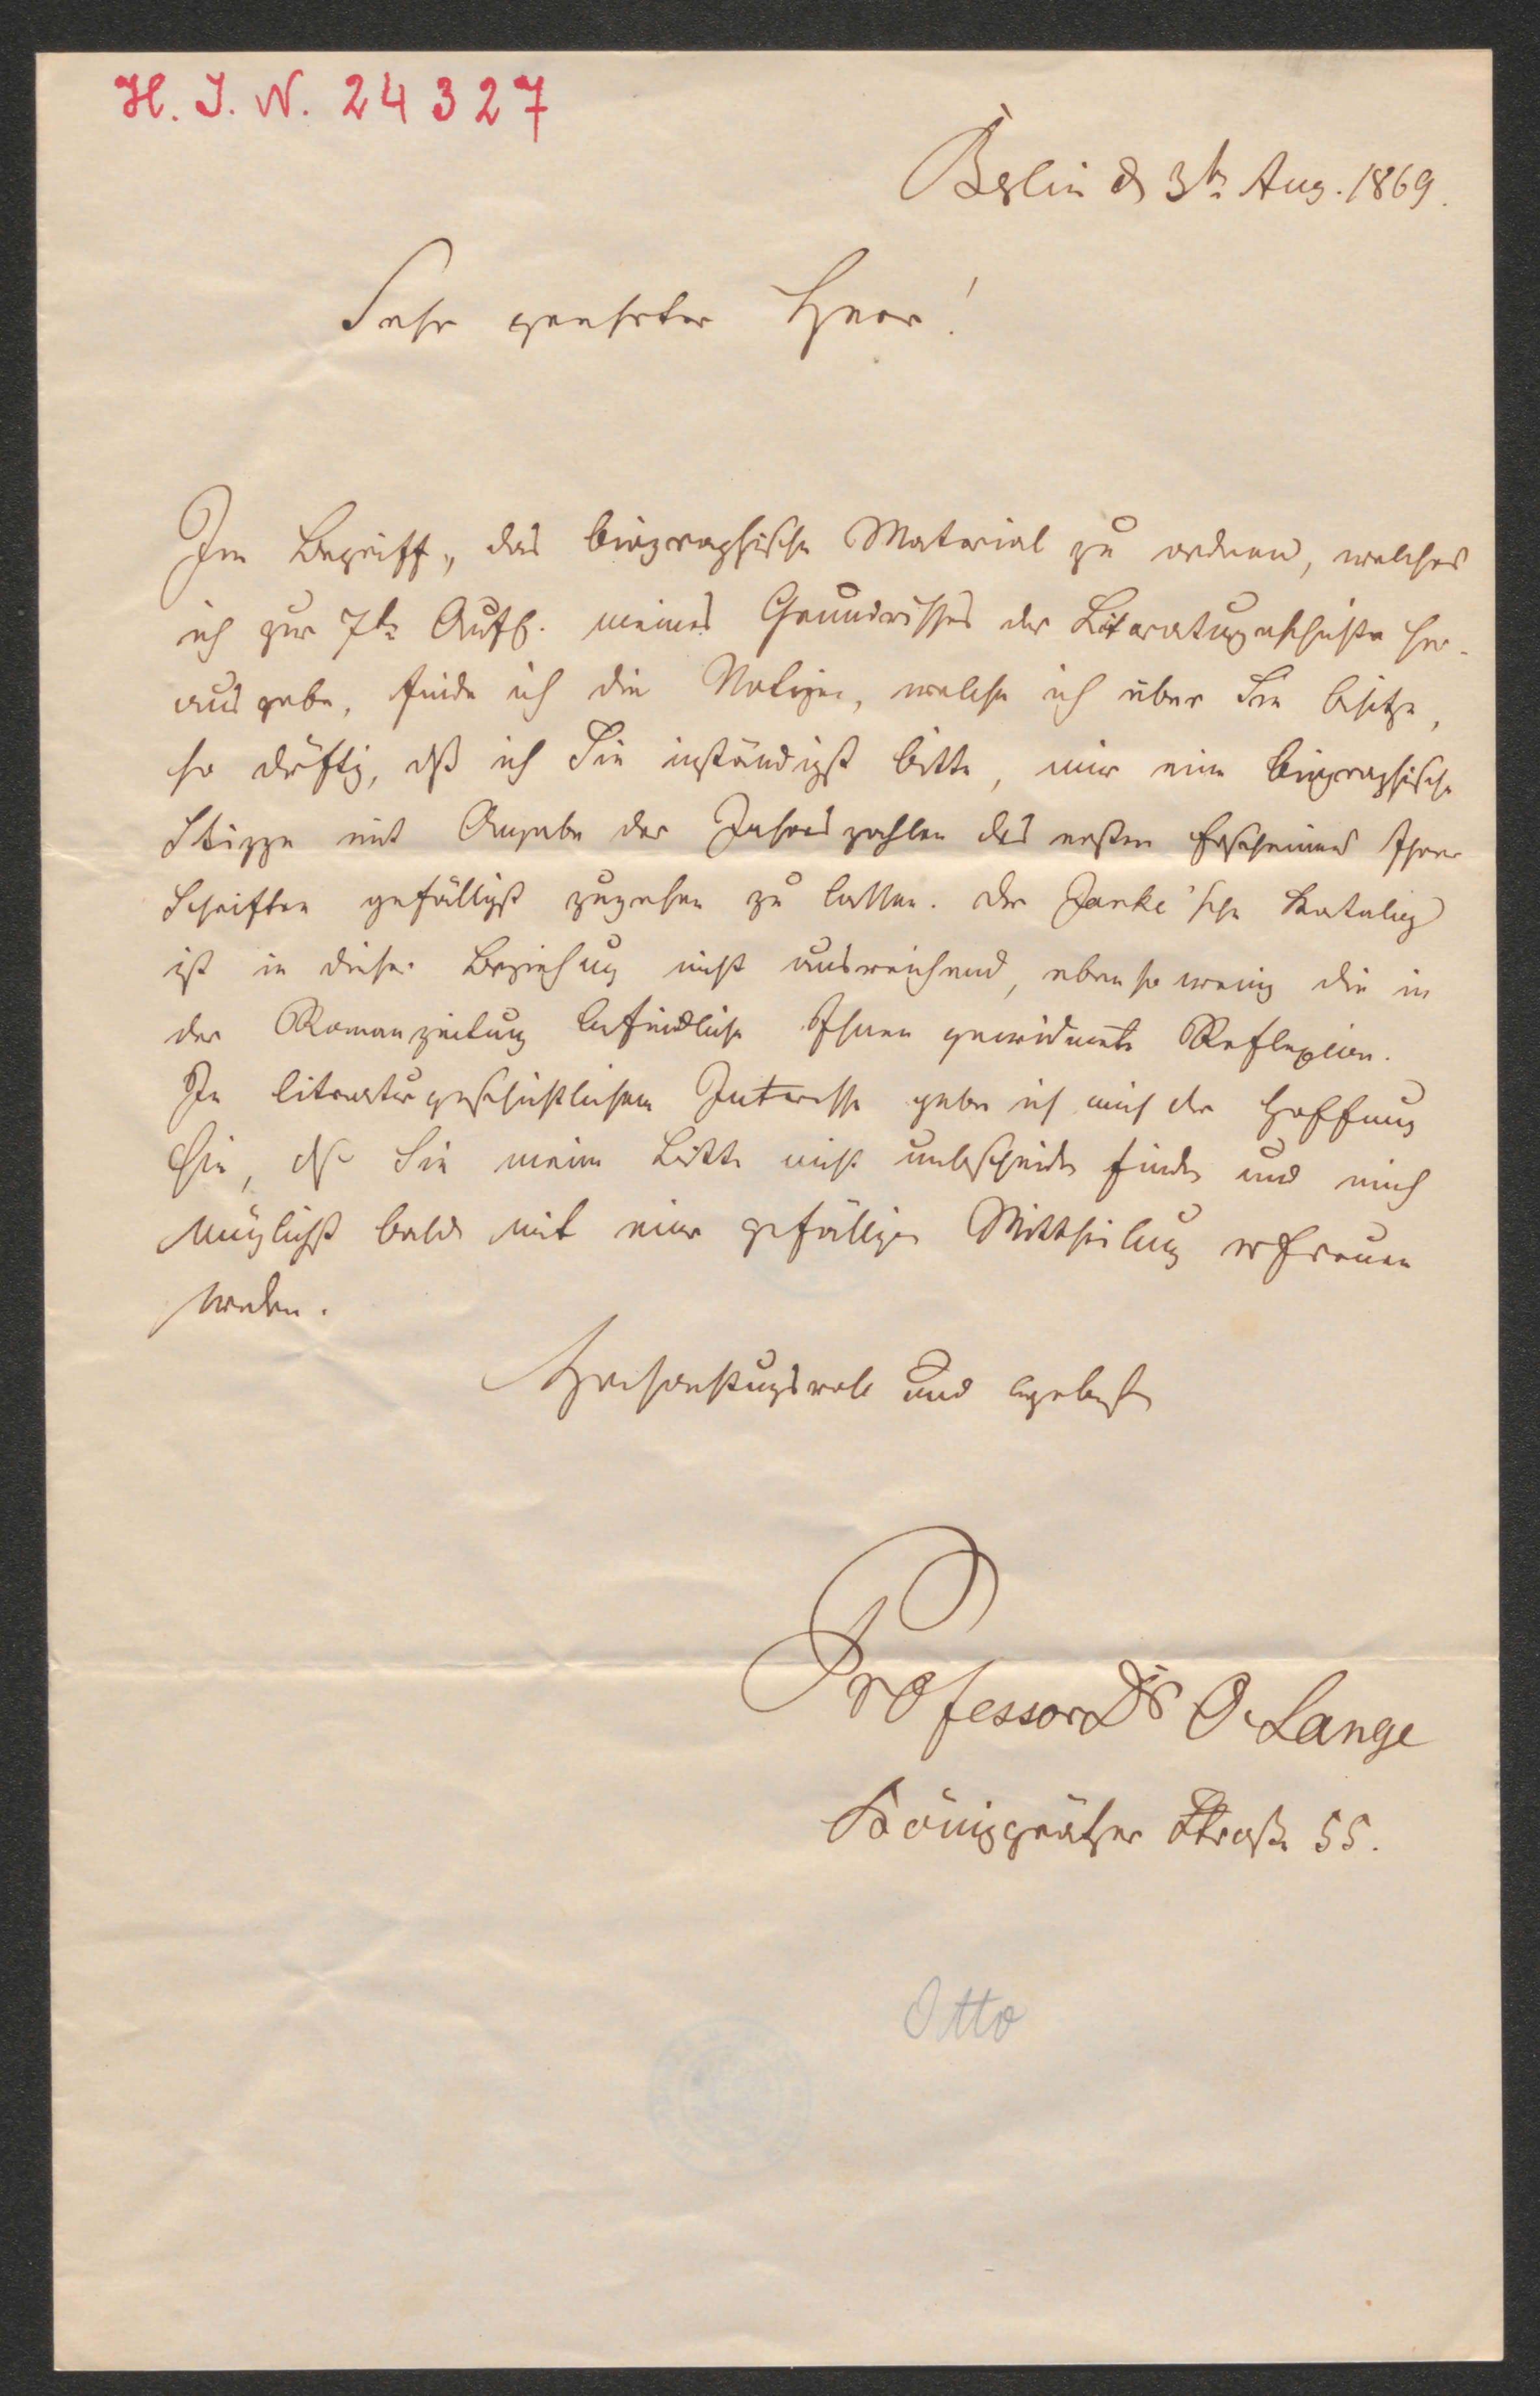 H. I. N. 24327
Berlin d 3t. Aug. 1869.
Sehr geehrter Herr!
Im Begriff, das biographische Material zu ordnen, welches
ich zur 7tn Aufl. meines Grundrisses der Literaturgeschichte her-
ausgebe, finde ich die Notizen, welche ich über Sie besitze,
so dürftig, dß ich Sie inständigst bitte, mir eine biographische
Skizze mit Angabe der Jahreszahlen des ersten Erscheinens Ihrer
Schriften gefälligst zugehen zu lassen. Der Janke'sche Katalog
ist in dieser Beziehung nicht ausreichend, eben so wenig die in
der Romanzeitung befindliche Ihnen gewidmete Reflexion.
Im literaturgeschichtlichen Interesse gebe ich mich der Hoffnung
hin, dß Sie meine Bitte nicht unbescheiden finden und mich
möglichst bald mit einer gefälligen Mittheilung erfreuen
werden.
Hochachtungsvoll und ergebenst
Professor Dr O. Lange
Königgrätzer Straße 55.
Otto